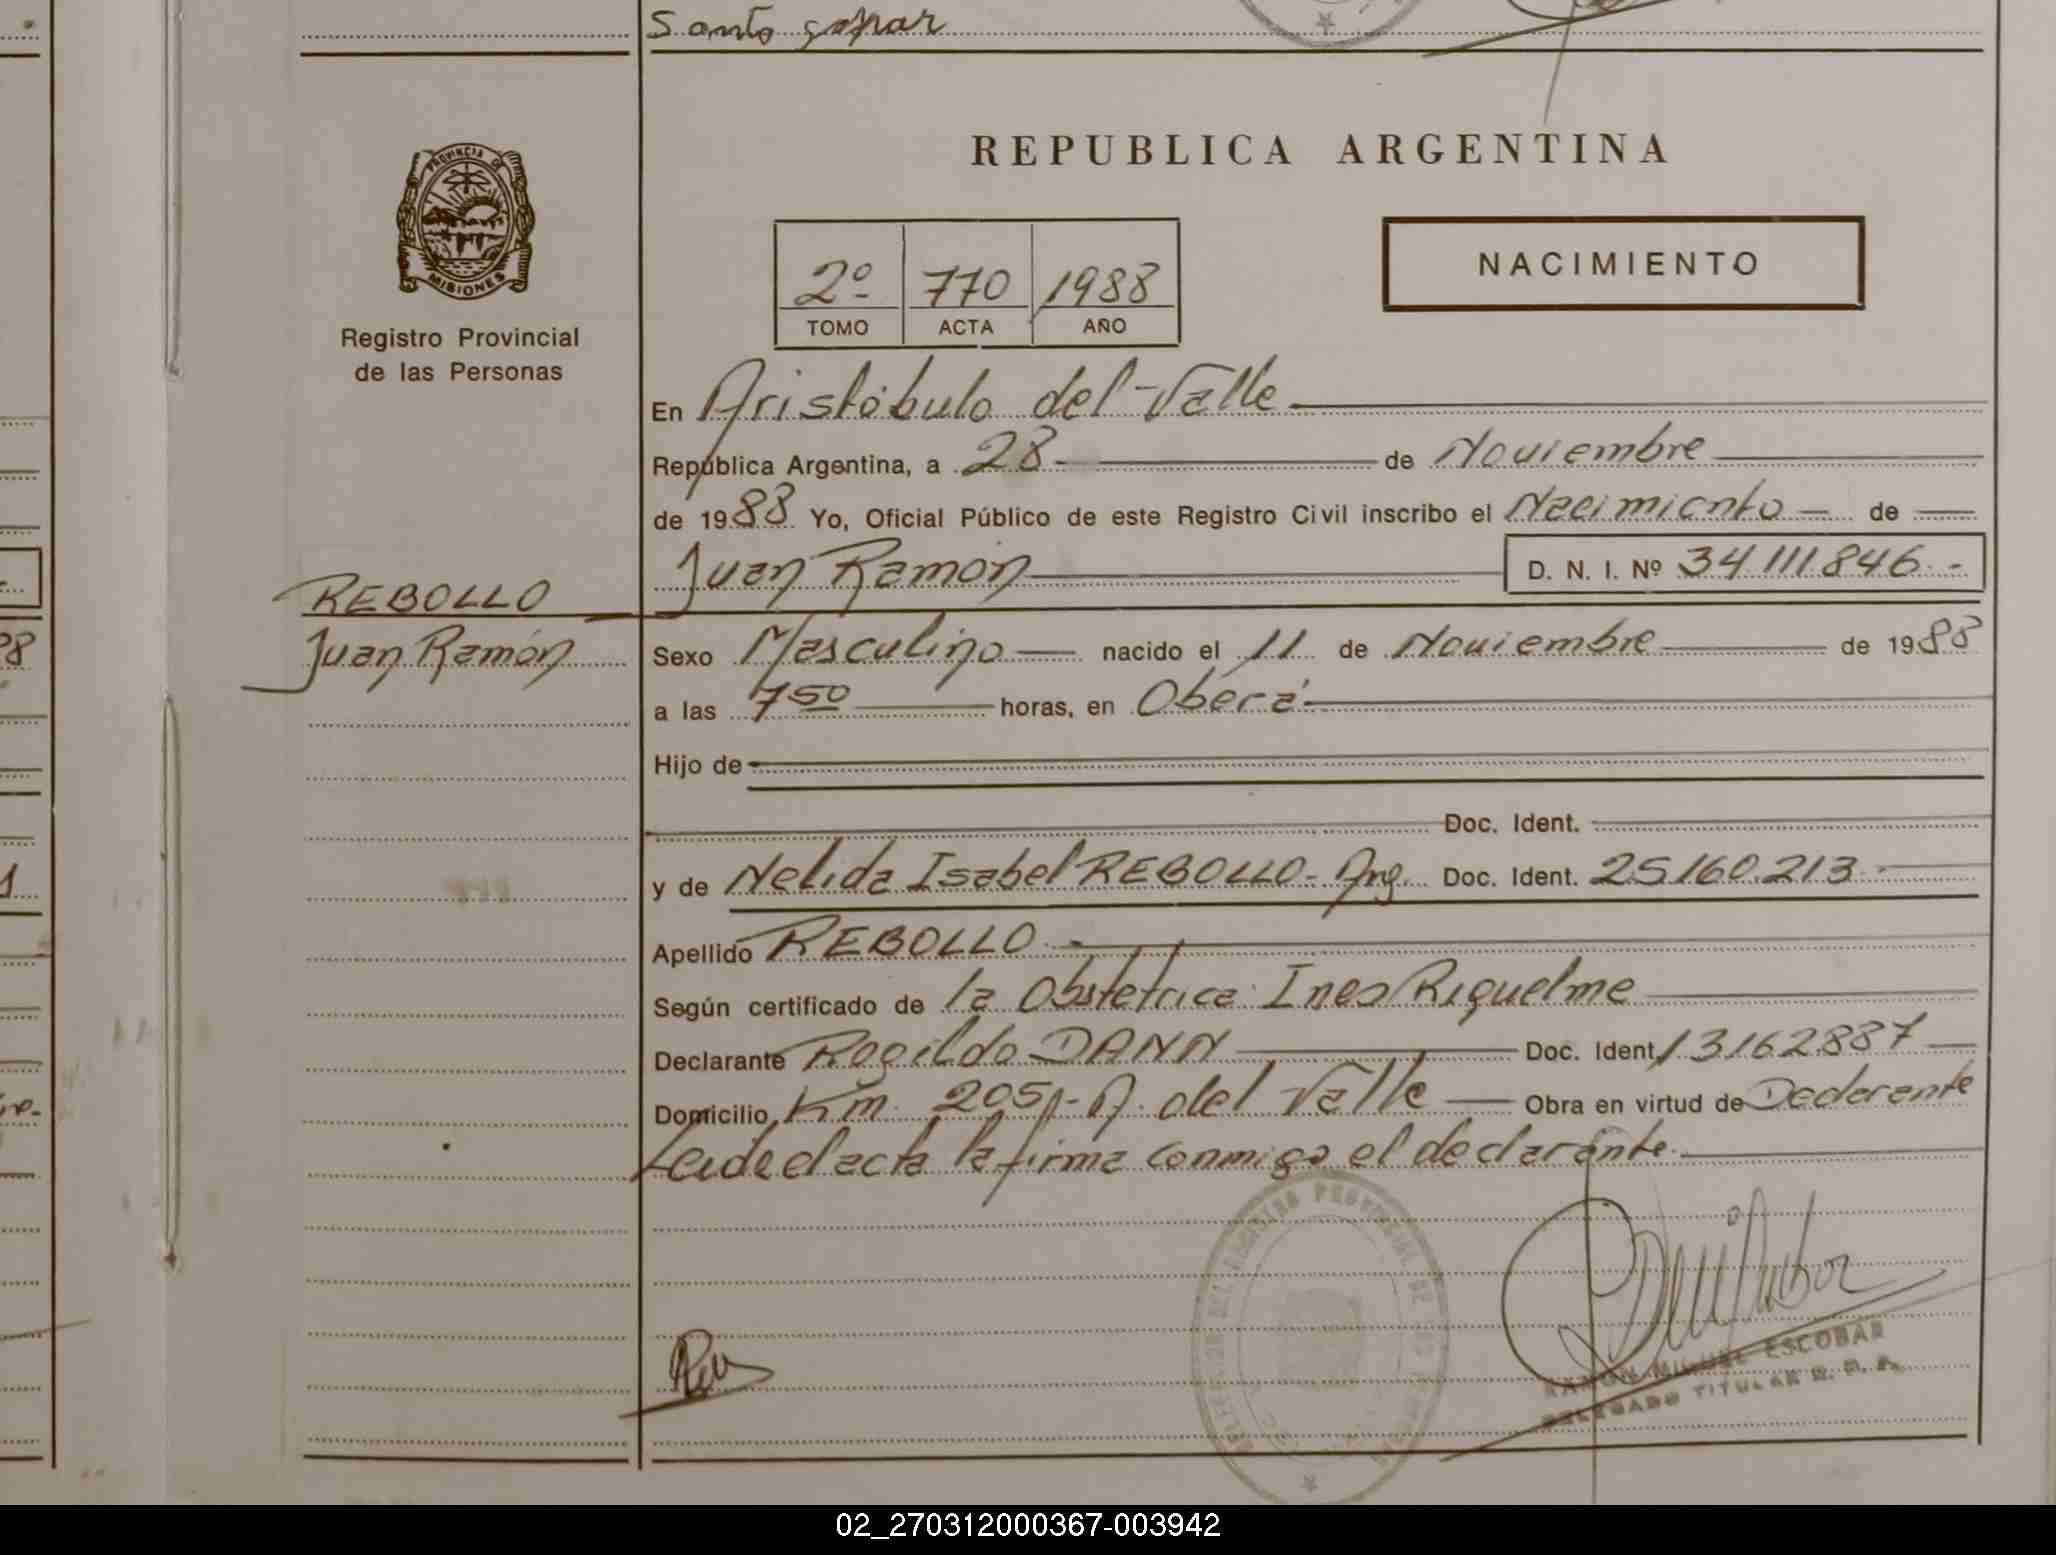 Santo gaspar
REPUBLICA ARGENTINA
PROVINCIA DE
MISIONES
Registro Provincial
de las Personas
2º 770 1988
TOMO ACTA AÑO
NACIMIENTO
En Aristóbulo del Valle
República Argentina, a 28 de Noviembre
de 1988 Yo, Oficial Público de este Registro Civil inscribo el Nacimiento de
Juan Ramón D. N. I. Nº 34.111.846.-
REBOLLO
Juan Ramón
Sexo Masculino nacido el 11 de Noviembre de 1988
a las 7⁵⁰ horas, en Oberá
Hijo de
Doc. Ident.
y de Nelida Isabel REBOLLO- Arg. Doc. Ident. 25.160.213.-
Apellido REBOLLO.-
Según certificado de la Obstetrica Ines Riquelme
Declarante Rogildo DANN Doc. Ident. 13162.887
Domicilio Km. 205,- A. del Valle Obra en virtud de Declarante
Leida el acta la firma conmigo el declarante.
REGISTRO PROVINCIAL DE LAS
RAMON MIGUEL ESCOBAR
DELEGADO TITULAR
02_270312000367-003942